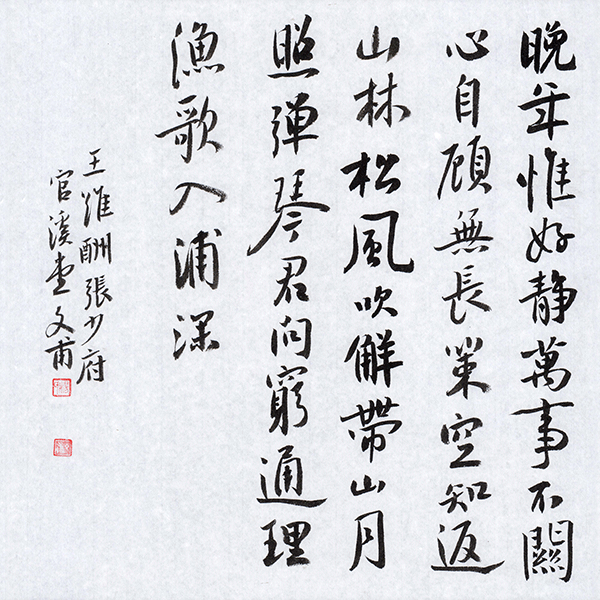 晚年惟好靜萬事不關
心自顧無長策空知返
山林松風吹解帶山月
照彈琴君問窮通理
漁歌入浦深
王維酬張少府
官溪文甫